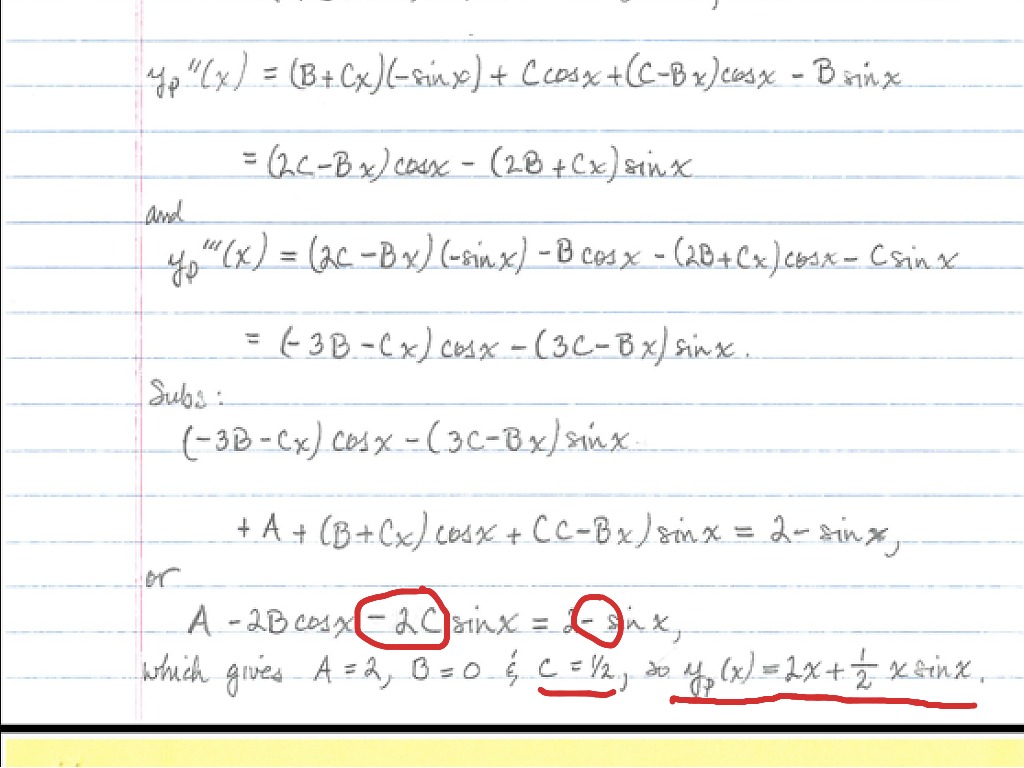 yp''(x) = (B+Cx)(-sinx) + C cosx + (C-Bx)cosx - B sinx
= (2C-Bx)cosx - (2B+Cx)sinx
and
yp'''(x) = (2C-Bx)(-sinx) - B cosx - (2B+Cx)cosx - C sinx
= (-3B-Cx)cosx - (3C-Bx)sinx.
Subs:
(-3B-Cx)cosx - (3C-Bx)sinx
+ A + (B+Cx)cosx + (C-Bx)sinx = 2 - sinx,
or
A - 2B cosx - 2C sinx = 2 - sinx,
which gives A = 2, B = 0 & C = 1/2, so yp(x) = 2x + 1/2 x sinx.